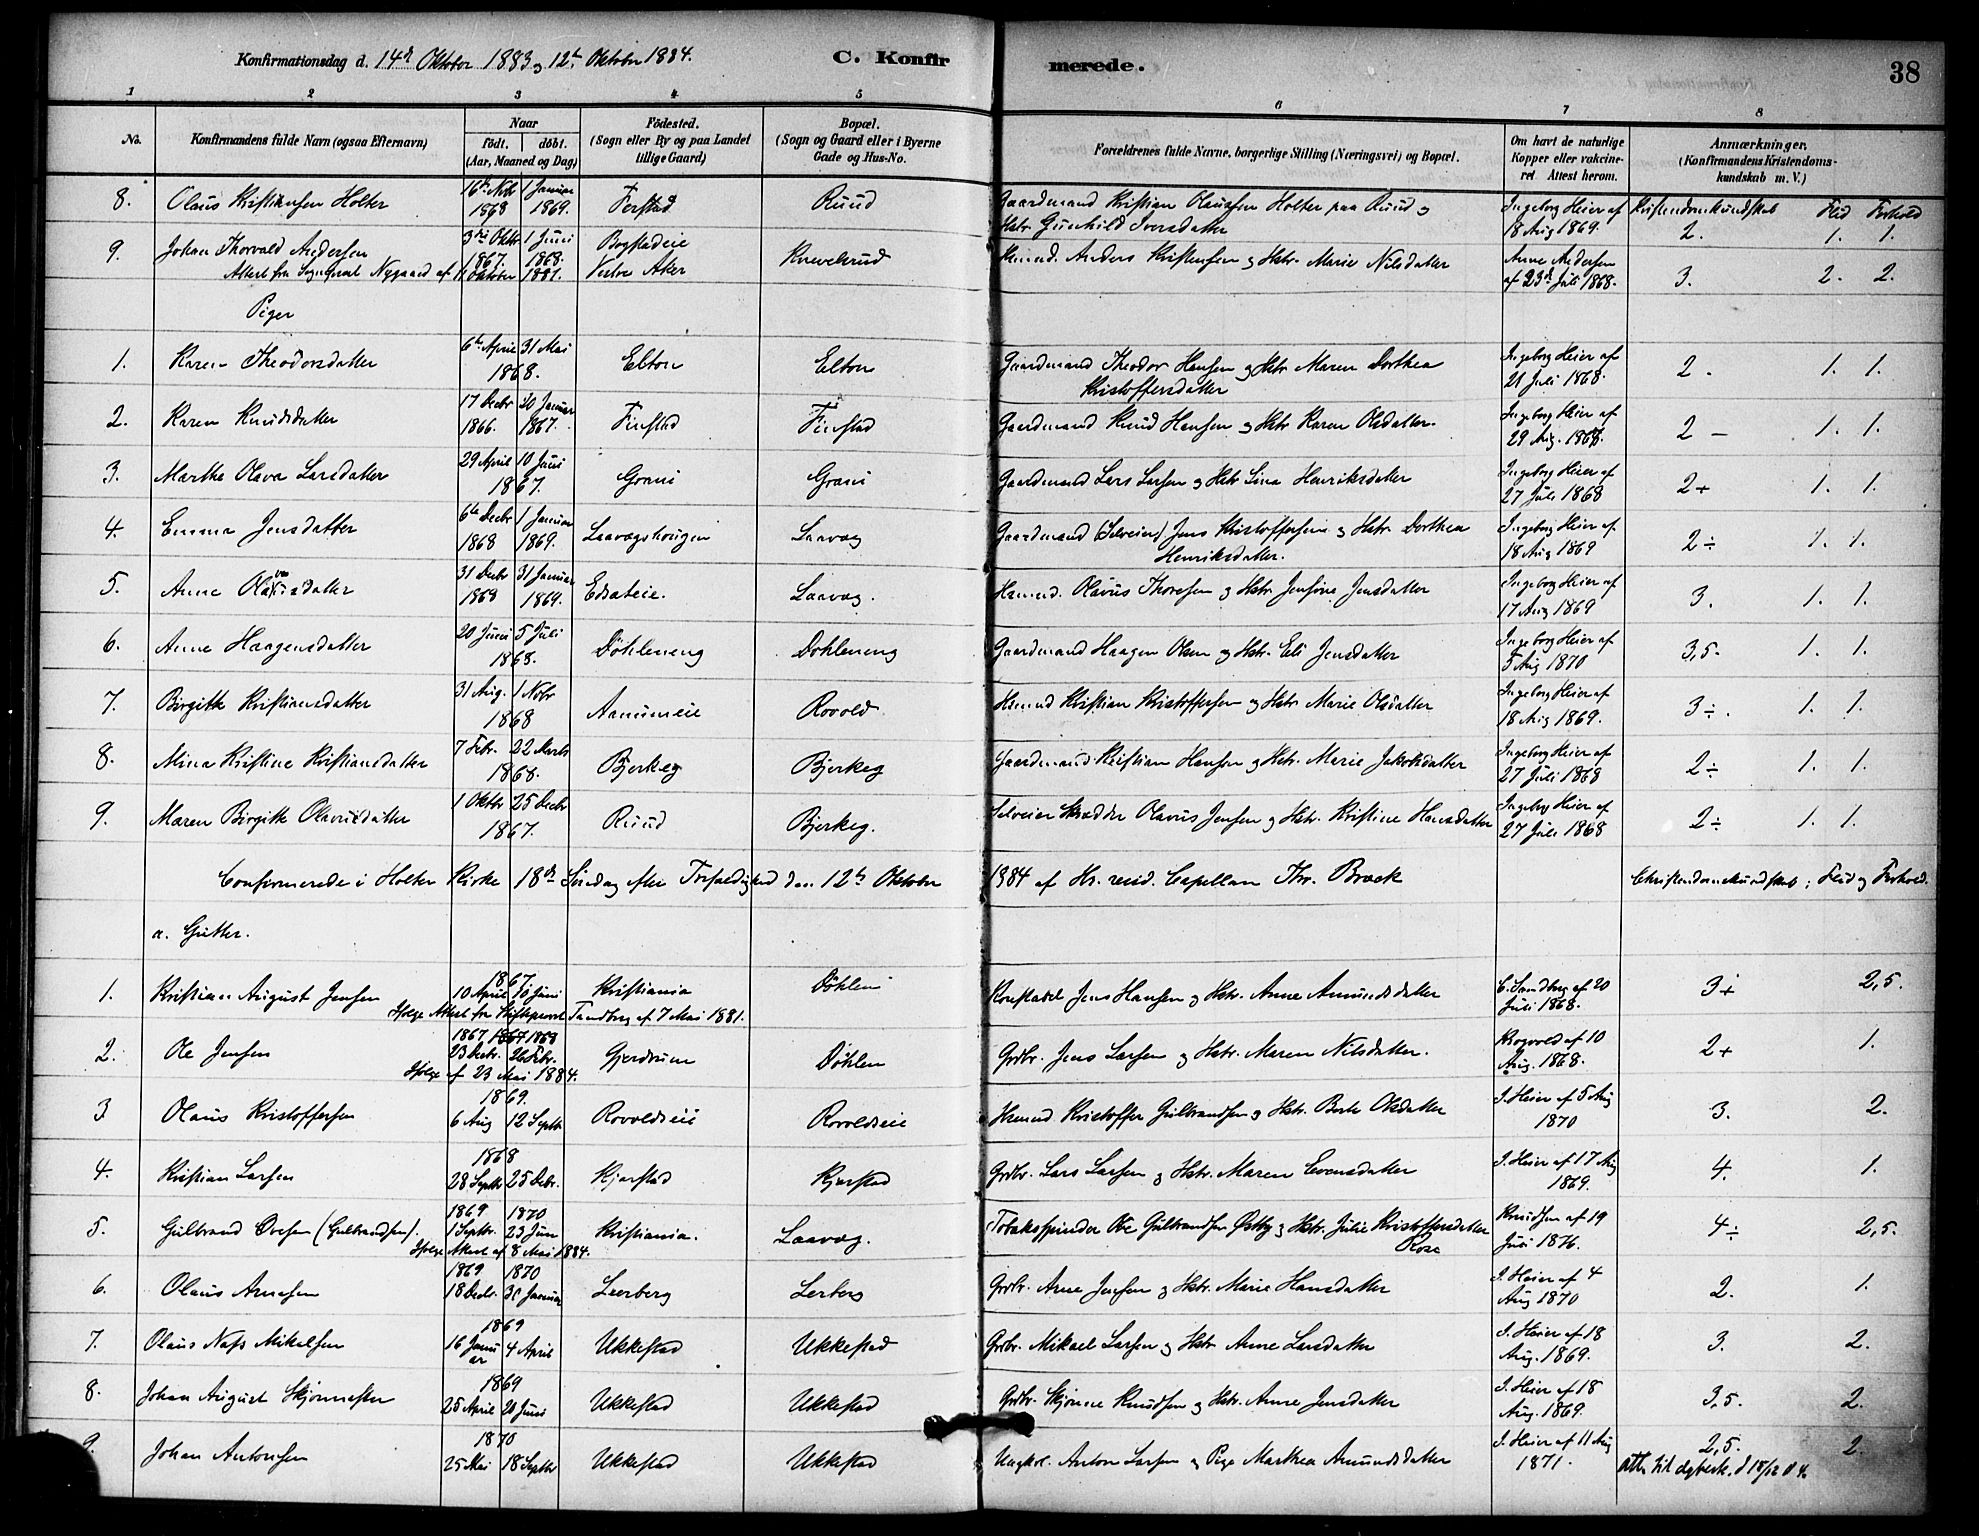 Konfirmationsdag d. 14de Oktober 1883 og 12te Oktober 1884.
C. Konfirmerede.
38
1 2 3 4 5 6 7 8
No.
Konfirmandens fulde Navn (ogsaa Efternavn)
Naar
født. døbt.
(Aar, Maaned og Dag)
Fødested.
(Sogn eller By og paa Landet
tillige Gaard)
Bopæl.
(Sogn og Gaard eller i Byerne
Gade og Hus-No.
Forældrenes fulde Navne, borgerlige Stilling (Næringsvei) og Bopæl.
Om havt de naturlige
Kopper eller vakcine-
ret. Attest herom.
Anmærkninger.
(Konfirmandens Kristendoms-
kundskab m. V.)
8. Olaus Kristiansen Holter 16de Novbr 1868 1 Januar 1869. Ruud Gaardmand Kristian Olaussen Holter paa Ruud og
Hstr. Gunhild Iversdatter Ingeborg Heier af 18 Aug 1869. Kristendomskundskab 2. Flid 1. Forhold 1.
9. Johan Thorvald Andersen 3die Oktbr 1867. 1 Juni 1868. Bogstadeie Vestre Aker Knevelsrud Husmd. Anders Kristensen og Hstr. Marie Nilsdatter Anne Andersen af 23de Juli 1868. 3. 2. 2.
Attest fra Sogneprest Nygaard af 11 Oktober 1881.
Piger
1. Karen Theodorsdatter 6te April 31 Mai 1868. Elton Elton Gaardmand Theodor Hansen og Hstr. Maren Dorthea
Kristoffersdatter Ingeborg Heier af 21 Juli 1868. 2. 1. 1.
2. Karen Knudsdatter 17 Decbr 1866. 20 Januar 1867. Finstad Finstad Gaardmand Knud Hansen og Hstr Karen Olsdatter. Ingeborg Heier af 29 Aug. 1868. 2 – 1. 1.
3. Marthe Olava Larsdatter 29 April 10 Juni 1867. Grani Grani Gaardmand Lars Larsen og Hstr Lina Henriksdatter Ingeborg Heier af 27 Juli 1868 2+ 1. 1.
4. Emma Jensdatter 6te Decbr 1868 1 Januar 1869. Laavaghaugen Laavag Gaardmand (Selveier) Jens Kristoffersen og Hstr. Dorthea
Henriksdatter. Ingeborg Heier af 18 Aug 1869 2÷ 1. 1.
5. Anne Olavusdatter 31 Decbr 1868 31 Januar 1869. Laavag. Husmd. Olavus Thoresen og Hstr. Jensine Jensdatter Ingeborg Heier af 17 Aug 1869 3. 1. 1.
6. Anne Haagensdatter 20 Juni 5 Juli 1868. Døhleneng Døhleneng Gaardmand Haagen Olsen og Hstr. Eli Jensdatter Ingeborg Heier af 5 Aug 1870 3,5. 1. 1.
7. Birgitte Kristiansdatter 31 Aug. 1 Nobr 1868 Aanumeie Rovold Husmd Kristian Kristoffersen og Hstr Marie Olsdatter Ingeborg Heier af 18 Aug 1869. 3÷. 1. 1.
8. Mina Kristine Kristiansdatter 7 Febr. 22 Marts 1868. Bjerkeg Bjerkeg Gaardmand Kristian Hansen og Hstr. Marie Jakobsdatter Ingeborg Heier af 27 Juli 1868 2÷ 1. 1.
9. Maren Birgitte Olavusdatter 1 Oktbr 25 Decbr 1867. Ruud Bjerkeg. Selveier Skrædder Olavus Jensen og Hstr. Kristine Hansdatter Ingeborg Heier af 27 Juli 1868 2÷ 1. 1.
Confirmerede i Holter Kirke 18de Søndag efter Trefoldighed den 12te Oktober 1884 af Hr. resid. Capellan Thr. Brock Christendomskundskab; Flid og Forhold.
a. Gutter.
1. Kristian August Jensen 1867 10 April 10 Juni Kristiania Døhlen Konstabel Jens Hansen og Hstr. Anne Amundsdatter C. Sandberg af 20 Juli 1868. 3+ 2,5.
Ifølge Attest fra Stiftsprovst Tandberg af 7 Mai 1881.
2. Ole Jensen 1867 1867 1868 23 Decbr. 26 Febr. Gjerdrum Døhlen Grdbr. Jens Larsen og Hstr. Maren Nilsdatter. Rogvold af 10 Aug. 1868. 2+ 1.
Ifølge af 23 Mai 1884.
3 Olaus Kristoffersen 1869. 6 Aug 12 Septbr Rovoldseie Rovoldseie Husmd. Kristoffer Gulbrandsen og Hstr. Berte Olsdatter I. Heier af 5 Aug 1870 3. 2.
4. Kristian Larsen 1868 28 Septbr 25 Decbr. Kjærstad Kjærstad Grdbr. Lars Larsen og Hstr. Maren Evensdatter I. Heier af 17 Aug 1869. 4. 1.
5. Gulbrand Ovesen (Gulbrandsen). 1869 1 Septbr. 1870 23 Jun Kristiania. Laavag. Tobaksspinder Ove Gulbrandsen Østby og Hstr. Julie Kristoffersdatter
Rosa Knudsen af 19 Juli 1876. 4÷ 2,5.
Ifølge Attest af 8 Mai 1884.
6. Olaus Arnesen 1869 18 Decbr. 1870 30 Januar Leerberg Lerberg Grdbr. Arne Jensen og Hstr. Marie Hansdatter I. Heier af 4 Aug 1870 2. 1.
7. Olaus Nass Mikalsen 1869 16 Januar 4 April Ukkestad Ukkestad Grdbr. Mikael Larsen og Hstr Anne Larsdatter I. Heier af 18 Aug. 1869. 3. 2.
8. Johan August Skjønnesen 1869 25 April 20 Juni Ukkestad Ukkestad Grdbr Skjønne Knudsen og Hstr. Anne Jensdatter I. Heier af 18 Aug. 1869. 3,5. 2.
9. Johan Antonsen 1870 25 Mai 18 Septbr Ukkestad Ukkestad Ungkrl. Anton Larsen og Pige Marthea Amundsdatter I. Heier af 11 Aug 1871. 2,5. 2.
Att. til